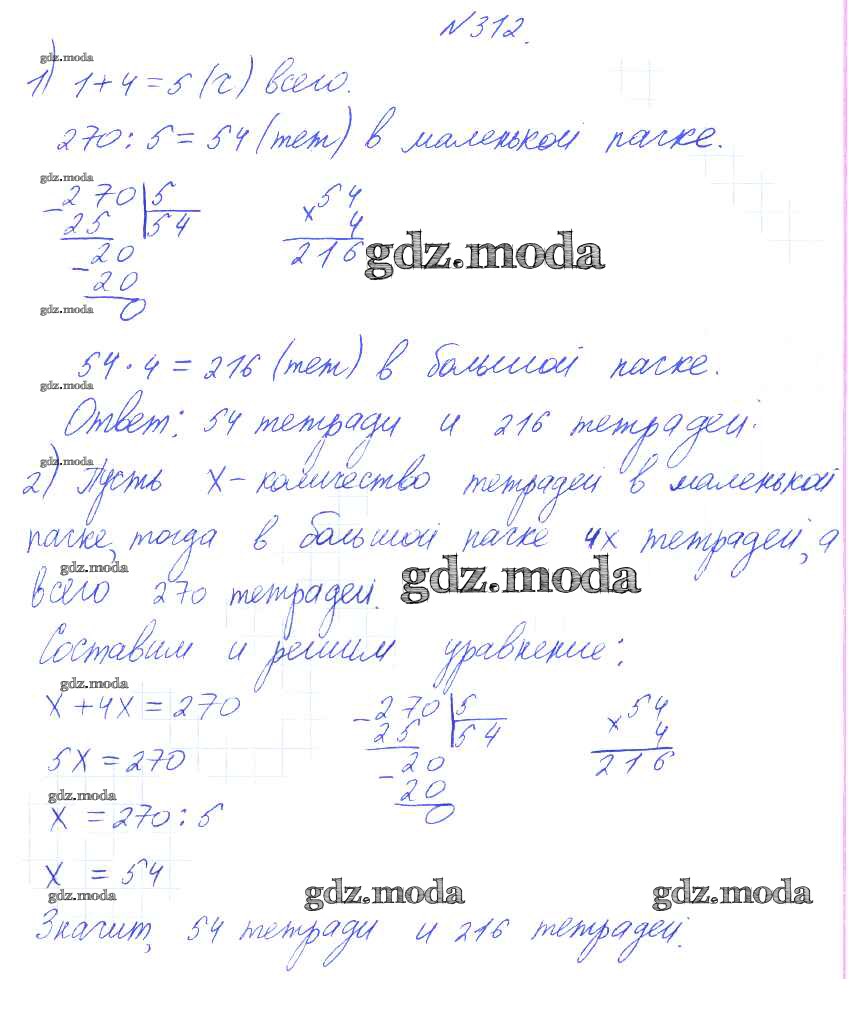 N312.
gdz.moda
1) 1+4=5(г) всего.
270:5=54(тет) в маленькой пачке.
gdz.moda
-270 5
25 54
-20
20
0
×54
4
216
gdz.moda
gdz.moda
54·4=216(тет) в большой пачке.
gdz.moda
Ответ: 54 тетради и 216 тетрадей.
gdz.moda
2) Пусть x-количество тетрадей в маленькой
пачке, тогда в большой пачке 4x тетрадей, а
gdz.moda
gdz.moda
всего 270 тетрадей.
Составим и решим уравнение:
gdz.moda
x+4x=270
5x=270
gdz.moda
x=270:5
x=54
-270 5
25 54
-20
20
0
×54
4
216
gdz.moda
gdz.moda
gdz.moda
Значит, 54 тетради и 216 тетрадей.